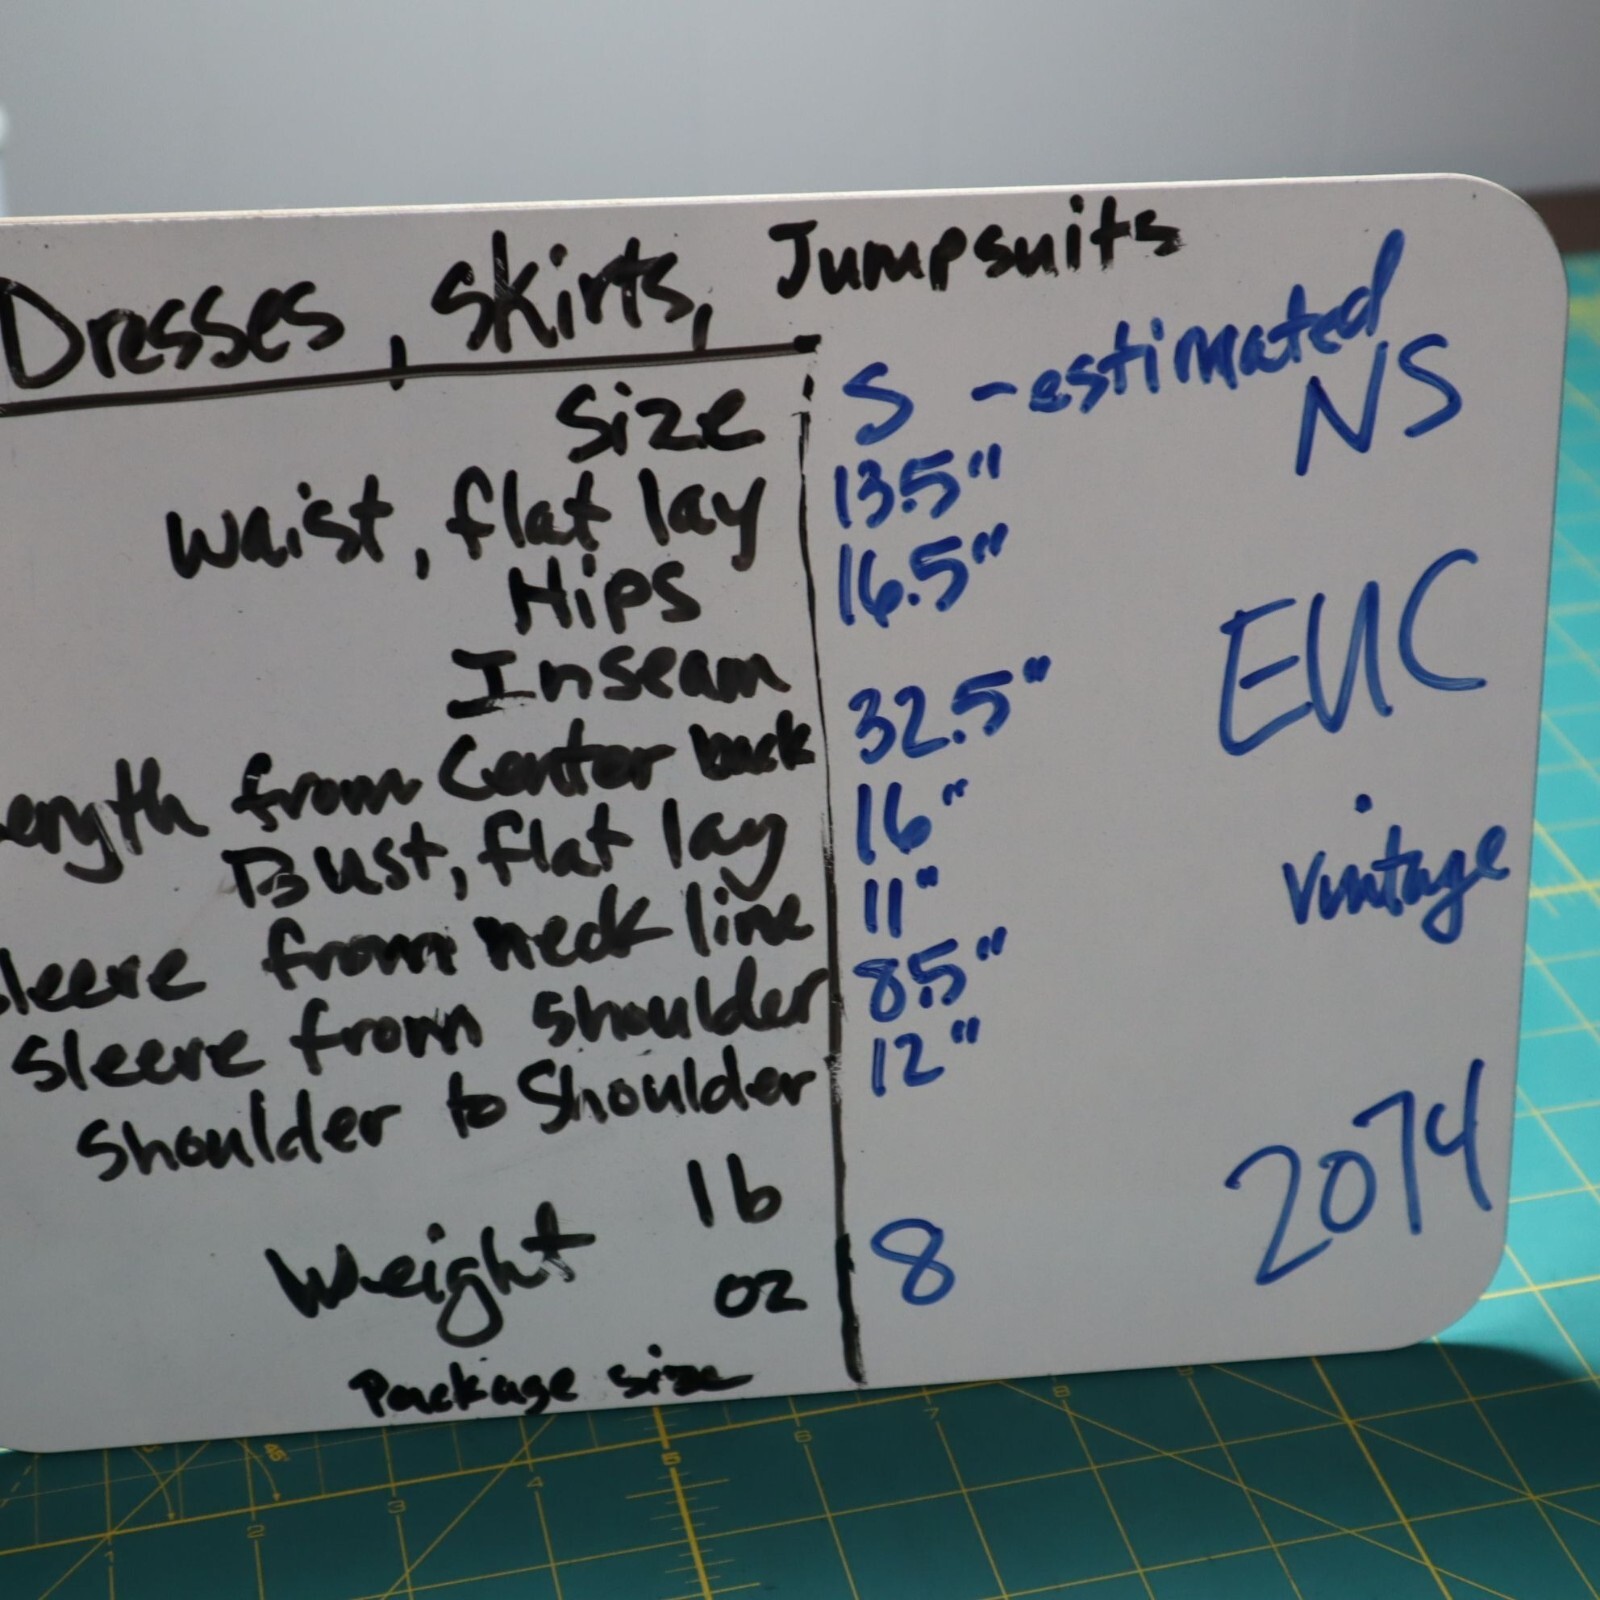 Dresses, Skirts, Jumpsuits
Size S - estimated
NS
Waist, flat lay 13.5"
Hips 16.5"
Inseam
EUC
Length from Center back 32.5"
Bust, flat lay 16"
vintage
Sleeve from neck line 11"
Sleeve from shoulder 8.5"
Shoulder to Shoulder 12"
2074
Weight lb
oz 8
Package size
1 2 3 4 5 6 7 8
45°